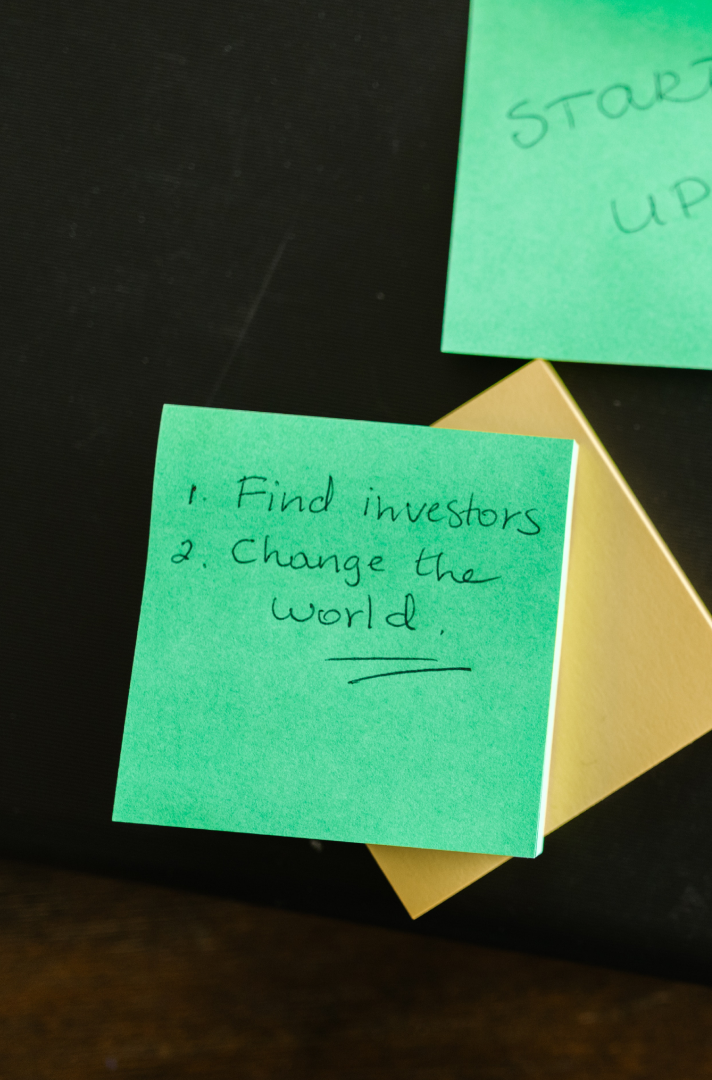 START
UP
1. Find investors
2. Change the
world.